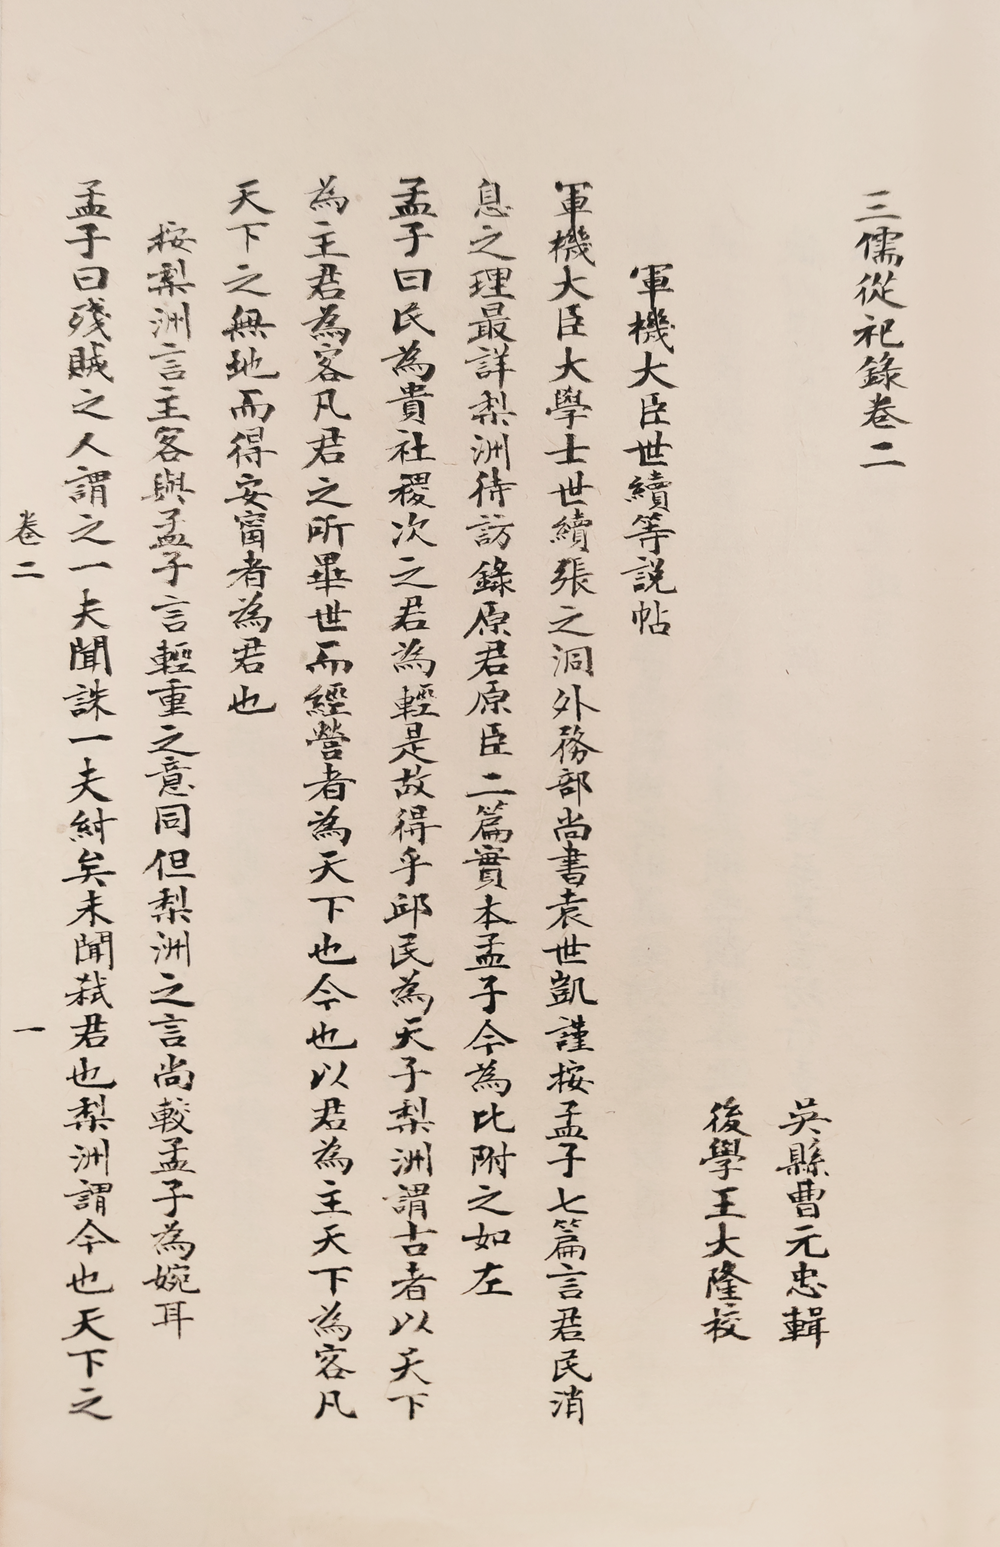 三儒從祀錄卷二
吳縣曹元忠輯
後學王大隆校
軍機大臣世續等説帖
軍機大臣大學士世續張之洞外務部尚書袁世凱謹按孟子七篇言君民消
息之理最詳梨洲待訪錄原君原臣二篇實本孟子今為比附之如左
孟子曰民為貴社稷次之君為輕是故得乎邱民為天子梨洲謂古者以天下
為主君為客凡君之所畢世而經營者為天下也今也以君為主天下為客凡
天下之無地而得安甯者為君也
按梨洲言主客與孟子言輕重之意同但梨洲之言尚較孟子為婉耳
孟子曰殘賊之人謂之一夫聞誅一夫紂矣未聞弒君也梨洲謂今也天下之
卷二
一